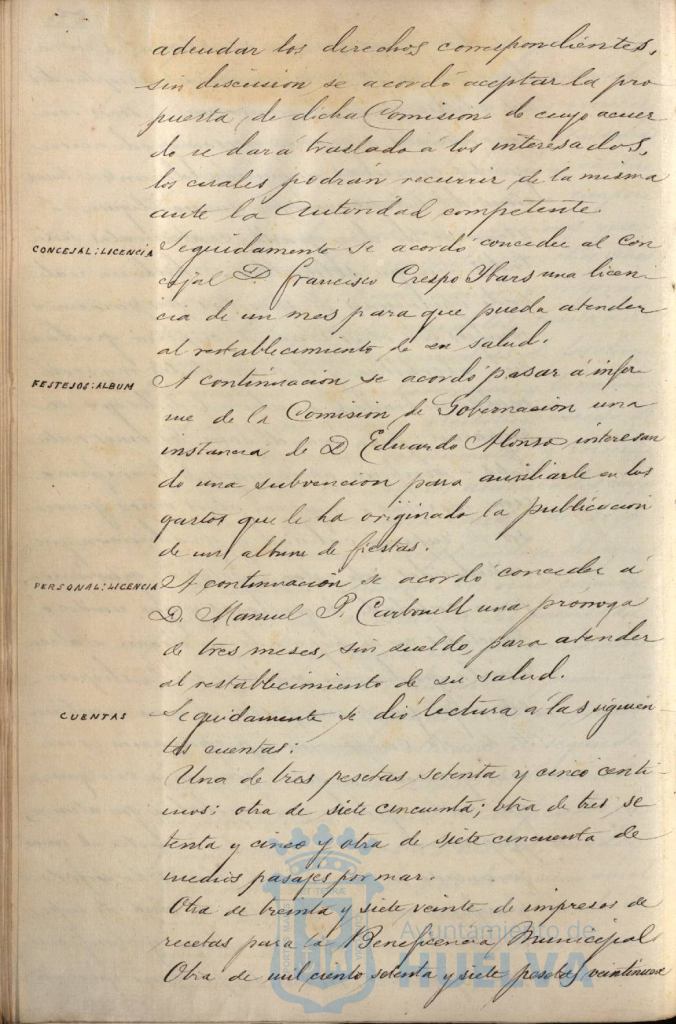 adeudar los derechos correspondientes,
sin discusion se acordó aceptar la pro
puesta de dicha Comision de cuyo acuer
do se dará traslado á los interesados,
los cuales podrán recurrir de la misma
ante la Autoridad competente.
CONCEJAL: LICENCIA
Seguidamente se acordó conceder al Con
cejal D. Francisco Crespo Ybars una licen
cia de un mes para que pueda atender
al restablecimiento de su salud.
FESTEJOS: ALBUM
A continuacion se acordó pasar á infor
me de la Comisión de Gobernacion una
instancia de D Eduardo Alonso interesan
do una subvencion para auxiliarle en los
gastos que le ha originado la publicacion
de un album de fiestas.
PERSONAL: LICENCIA
A continuación se acordó conceder á
D. Manuel P. Carbonell una prórroga
de tres meses, sin sueldo, para atender
al restablecimiento de su salud.
CUENTAS
Seguidamente se dió lectura á las siguien
tes cuentas:
Una de tres pesetas setenta y cinco centi
mos; otra de siete cincuenta; otra de tres se
tenta y cinco y otra de siete cincuenta de
medios pasajes por mar.
Otra de treinta y siete veinte de impresos de
recetas para la Beneficencia Municipal
Otra de mil ciento setenta y siete pesetas veintinueve
Ayuntamiento de
HUELVA